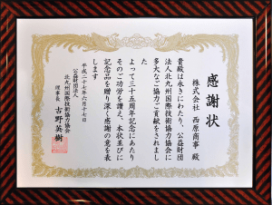 感謝状
株式会社 西原商事 殿
貴殿は永きにわたり、公益財団
法人北九州国際技術協力協会に
多大なご協力ご貢献をされまし
た
よって三十五周年記念にあたり
そのご功労を讃え、本状並びに
記念品を贈り深く感謝の意を表
します
平成二十七年六月十七日
公益財団法人
北九州国際技術協力協会
理事長 古野英樹